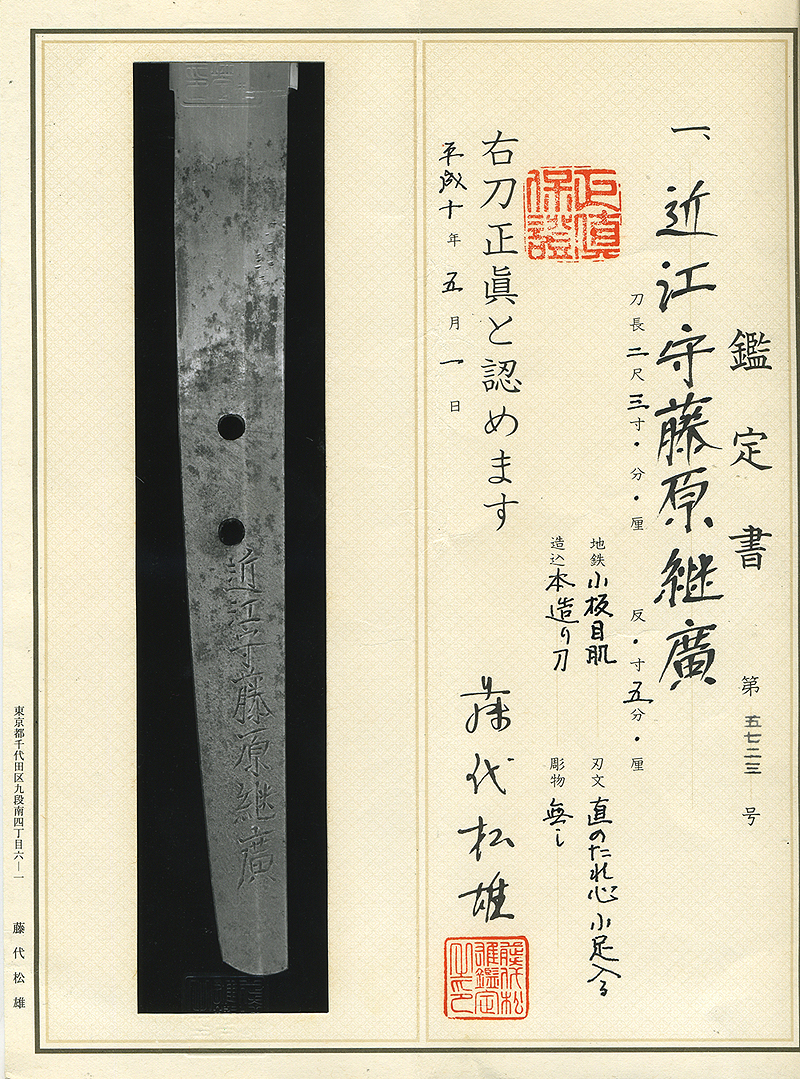 鑑定書 第五七二三号
一、近江守藤原継廣
刀長二尺三寸・分・厘 反・寸五分・厘
地鉄 小板目肌 刃文 直のたれ心小足入る
造込 本造り刀 彫物 無し
正真保證
右刀正眞と認めます
平成十年五月一日
藤代松雄
近江守藤原継廣
東京都千代田区九段南四丁目六―一 藤代松雄